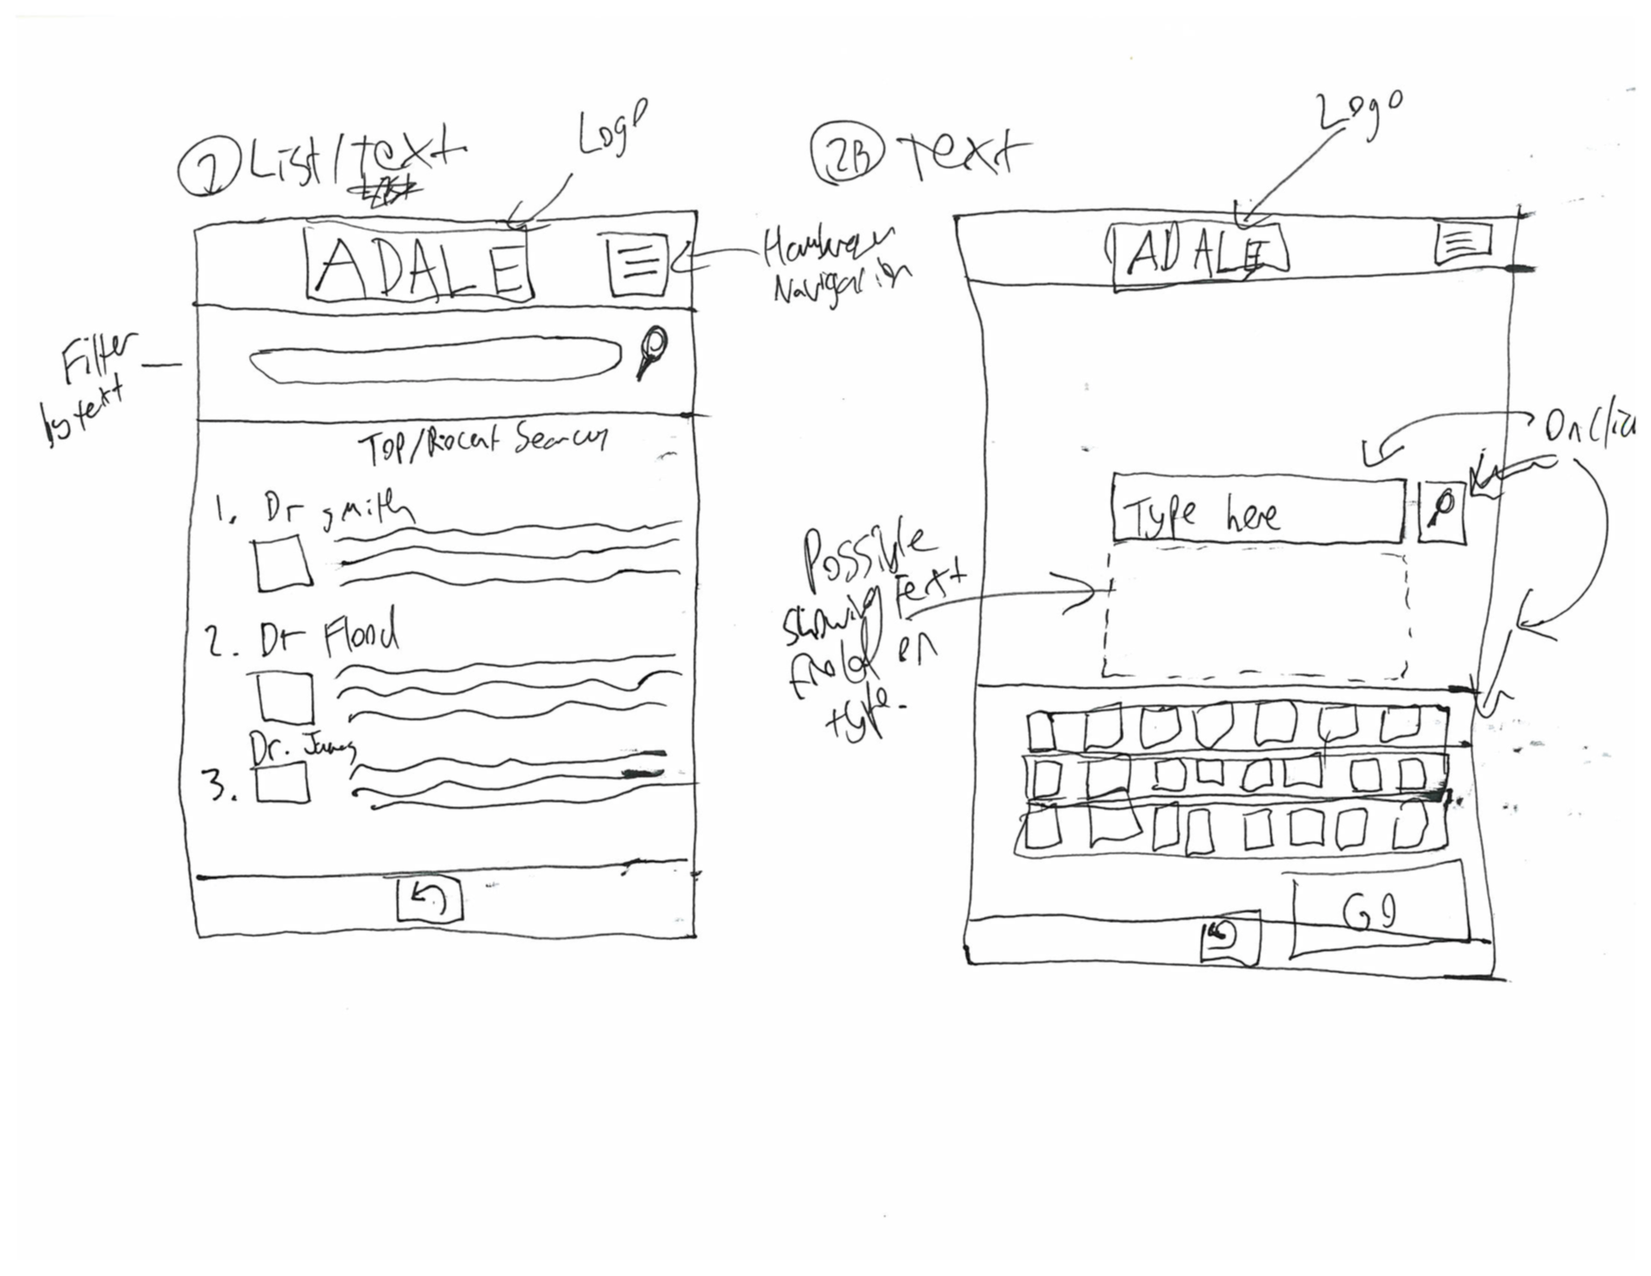 2 List/text
Logo
ADALE
Hamburger
Navigation
Filter
by text
Top/Recent Search
1. Dr smith
2. Dr Flood
Dr. James
3.
2B Text
Logo
ADALE
On Clic
Type here
Possible
showing text
field on
type.
GO